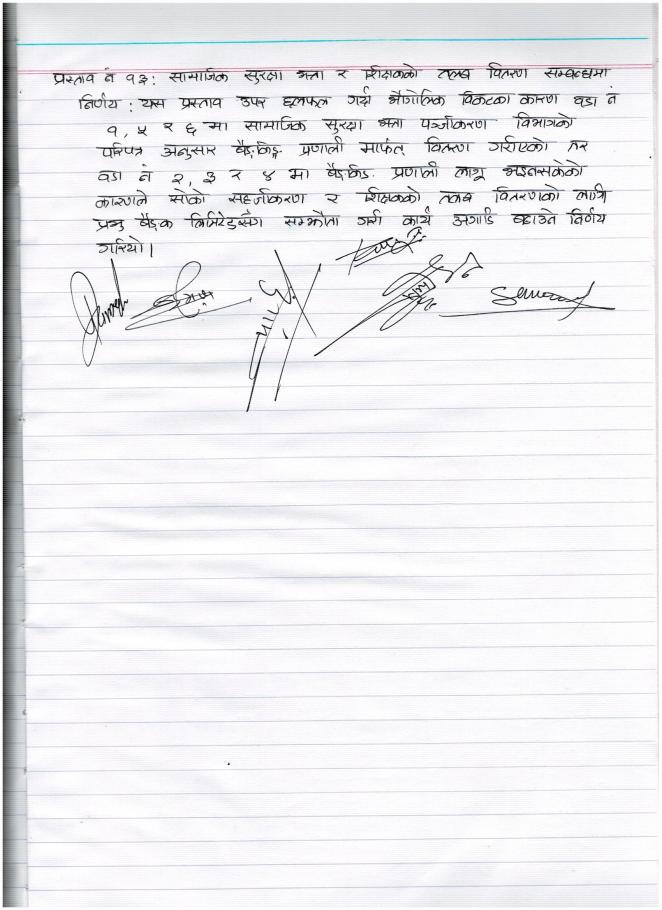 प्रस्ताव नं १३: सामाजिक सुरक्षा भत्ता र शिक्षकको तलब वितरण सम्बन्धमा
निर्णय : यस प्रस्ताव उपर छलफल गर्दा भौगोलिक विकटका कारण वडा नं
१, ५ र ६ मा सामाजिक सुरक्षा भत्ता पञ्जीकरण विभागको
परिपत्र अनुसार बैङ्किङ्ग प्रणाली मार्फत् वितरण गरीएको तर
वडा नं २, ३ र ४ मा बैङ्किङ प्रणाली लागू भइनसकेको
कारणले सोको सहजीकरण र शिक्षकको तलब वितरणको लागि
प्रभु बैङ्क लिमिटेडसँग सम्झौता गरी कार्य अगाडि बढाउने निर्णय
गरियो।